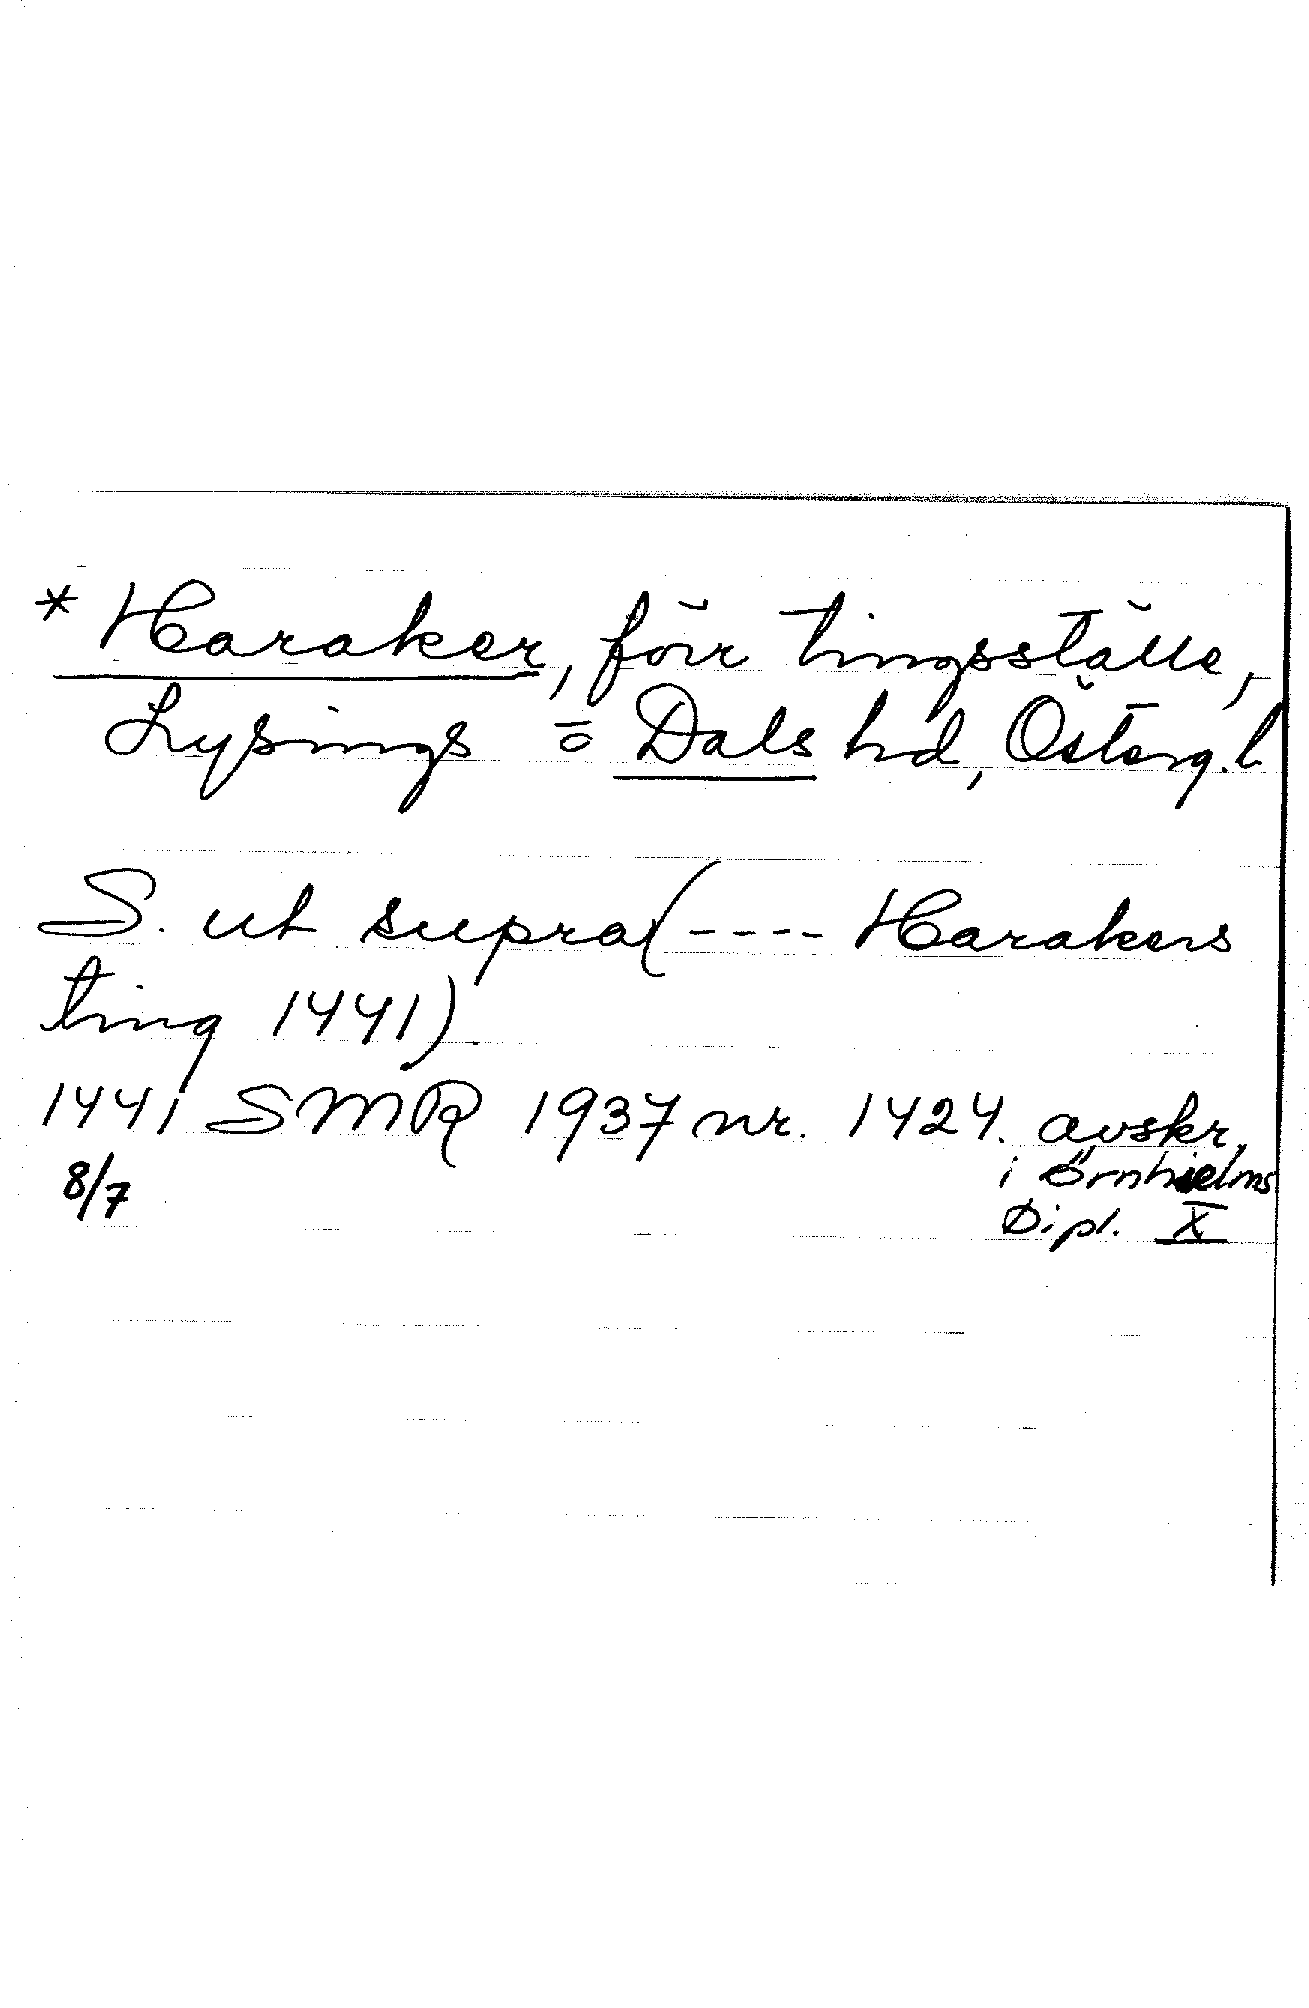 * Haraker, förr tingsställe,
Lysings o Dals hd, Österg.l
S. ut supra (---- Harakers
ting 1441)
1441 SMR 1937 nr. 1424. avskr.
8/7
i Örnhielms
Dipl. X